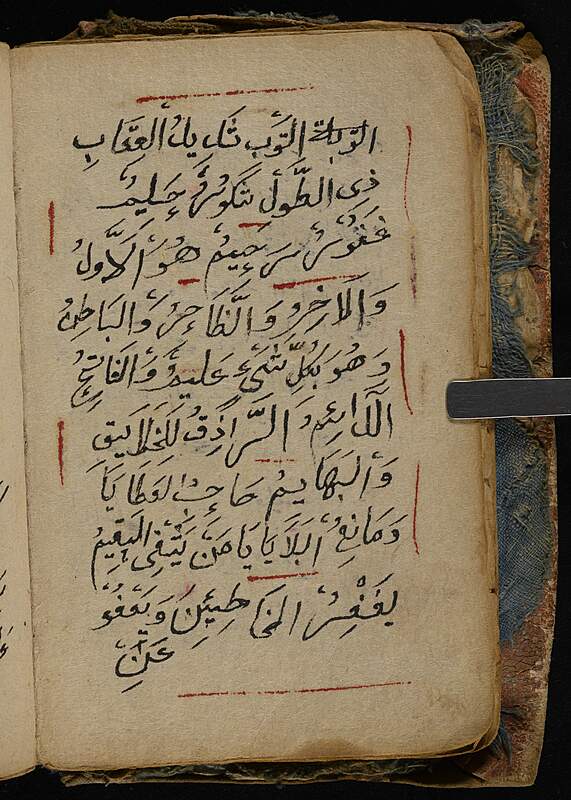 التوبة التوب شديد العقاب
ذى الطَّول شَكُورٌ حَلِيمٌ
غَفُورٌ رَحِيمٌ هُوَ الْأَوَّلُ
وَالآخِرُ وَالظَّاهِرُ وَالْبَاطِنُ
وَهُوَ بِكُلِّ شَىْءٍ عَلِيمٌ وَالْفَاتِحُ
الدَّائِمُ الرَّازِقُ لِلْخَلَايِقِ
وَالْبَهَايِمِ صَاحِبُ الْعَطَايَا
وَمَانِعُ الْبَلَايَا يَا مَنْ يَشْفِى السَّقِيمَ
يَغْفِرُ الْخَاطِئِينَ وَيَعْفُو
عَنِ